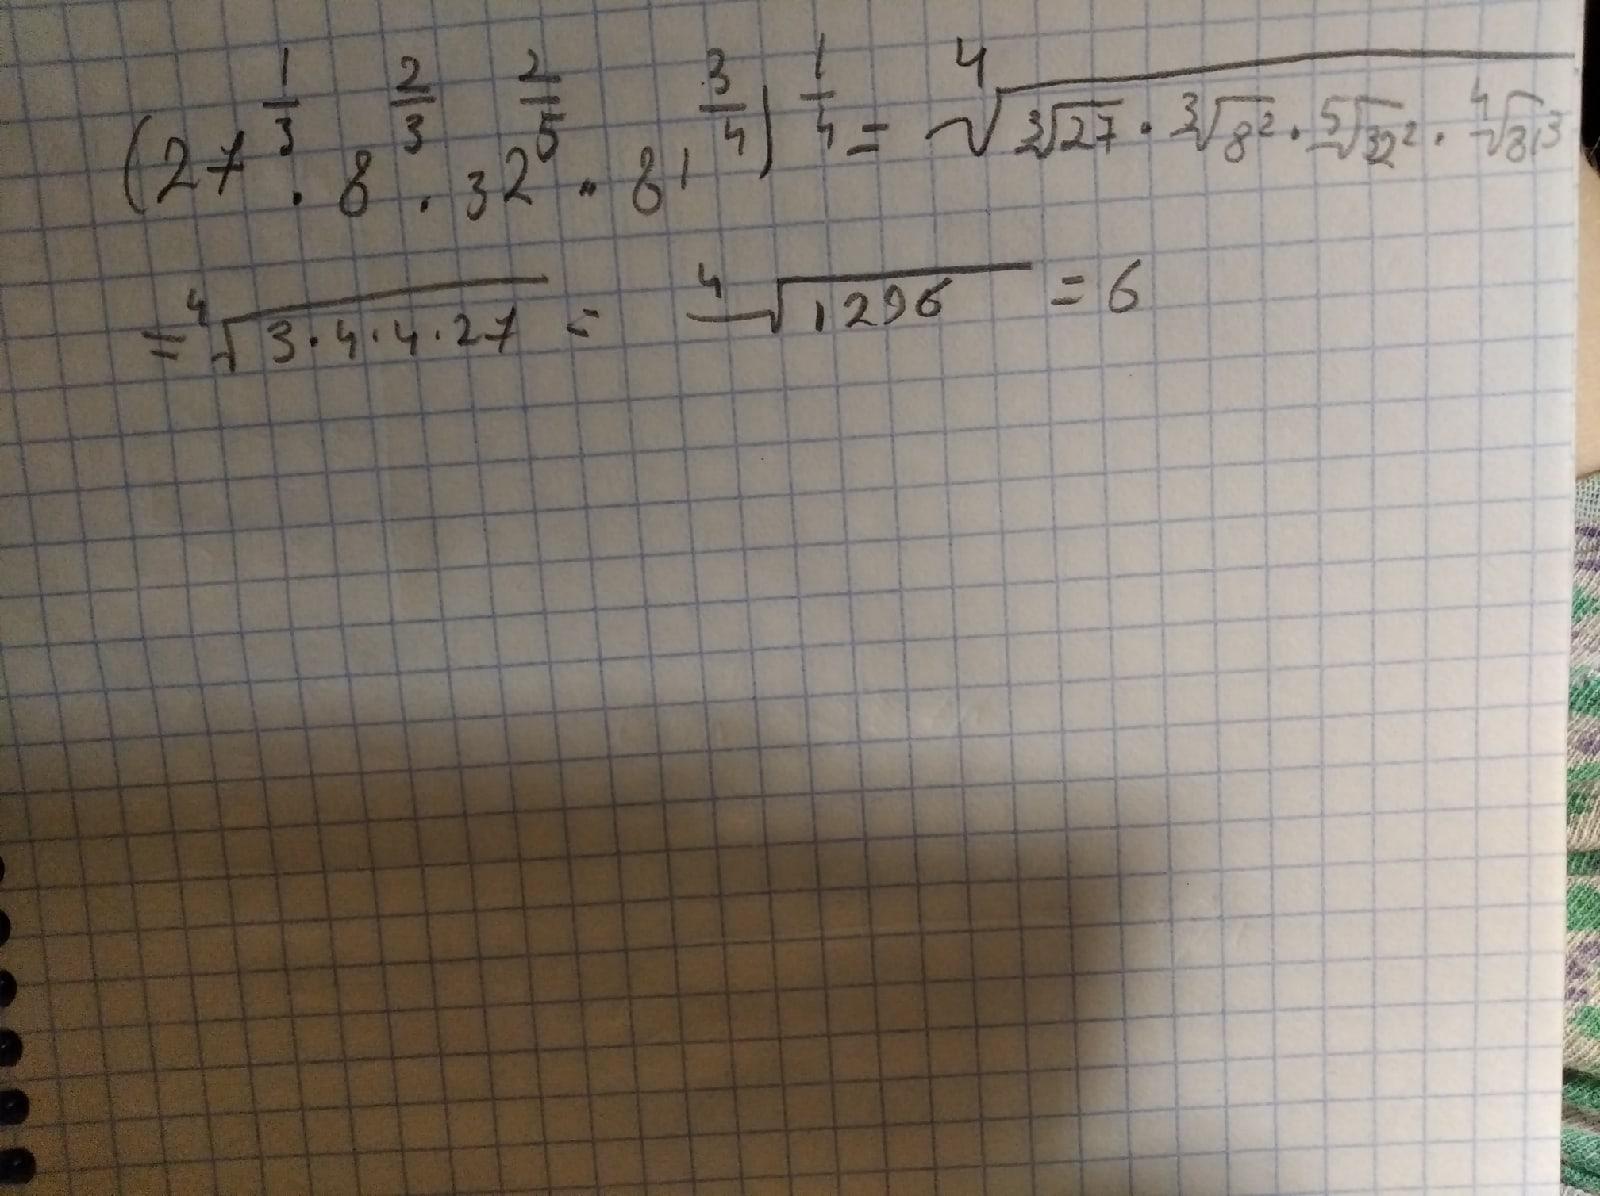 (27^(1/3) · 8^(2/3) · 32^(2/5) · 81^(3/4))^(1/4) = ⁴√(³√27 · ³√8² · ⁵√32² · ⁴√81³)
= ⁴√(3·4·4·27) = ⁴√1296 = 6